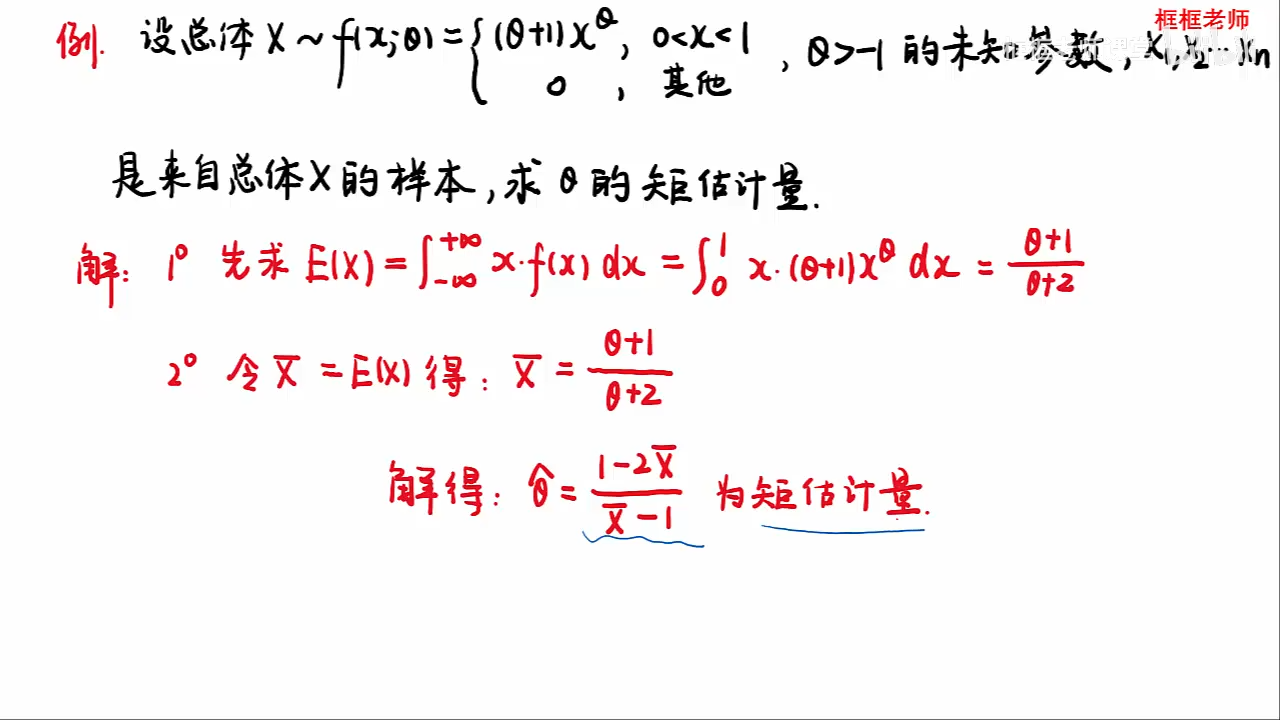 框框老师
例. 设总体 X ~ f(x;θ) = { (θ+1)x^θ, 0<x<1 , θ>-1 的未知参数, X₁,X₂…Xn
0 , 其他
是来自总体X的样本,求 θ 的矩估计量.
解: 1° 先求 E(X) = ∫_{-∞}^{+∞} x·f(x) dx = ∫_0^1 x·(θ+1)x^θ dx = (θ+1)/(θ+2)
2° 令 X̅ = E(X) 得: X̅ = (θ+1)/(θ+2)
解得: θ̂ = (1-2X̅)/(X̅-1) 为矩估计量.